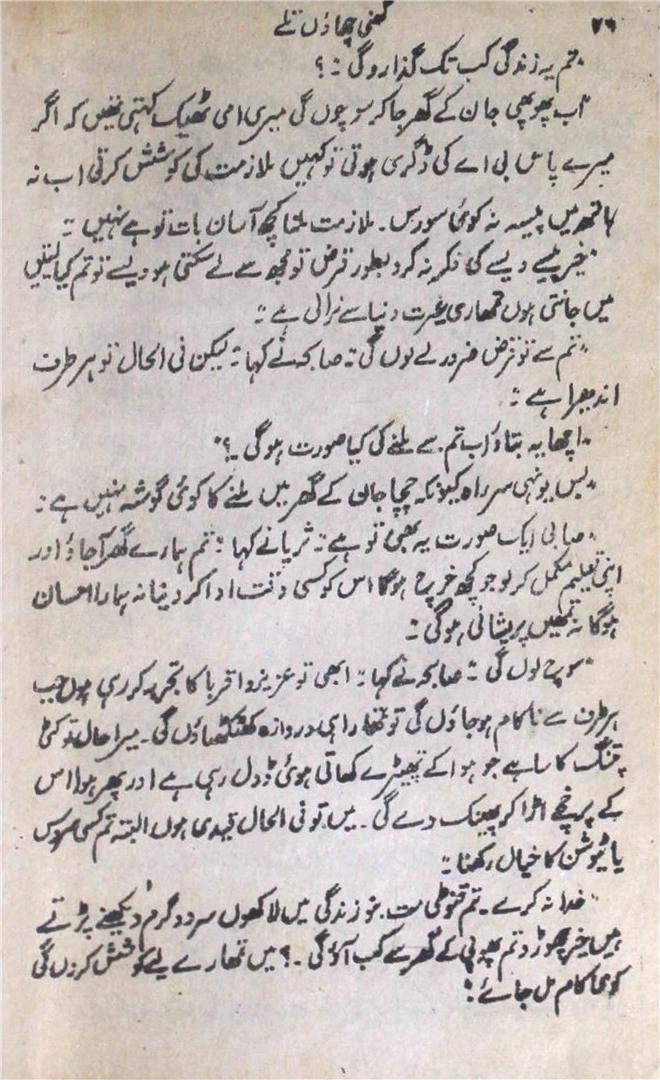 ۲۶
گھنی چھاؤں تلے
"تم یہ زندگی کب تک گذارو گی ۔"؟
"اب پھوپھی جان کے گھر جا کر سوچوں گی میری امی ٹھیک کہتی تھیں کہ اگر
میرے پاس بی اے کی ڈگری ہوتی تو کہیں ملازمت کی کوشش کرتی اب نہ
ہاتھ میں پیسہ نہ کوئی سورس ۔ ملازمت ملنا کچھ آسان بات تو ہے نہیں ۔"
"خیر پیسے ویسے کی فکر نہ کرو بطور قرض تو مجھ سے لے سکتی ہو ویسے تو تم کیا لیتیں
میں جانتی ہوں تمھاری غیرت دنیا سے نرالی ہے ۔"
"تم سے تو قرض ضرور لے لوں گی ۔" صابحہ نے کہا ۔" لیکن فی الحال تو ہر طرف
اندھیرا ہے ۔"
"اچھا یہ بتاؤ اب تم سے ملنے کی کیا صورت ہوگی ۔؟"
"بس یونہی سرراہ کیونکہ چچا جان کے گھر میں ملنے کا کوئی گوشہ نہیں ہے ۔"
"صابی ایک صورت یہ بھی تو ہے ۔" ثریا نے کہا ۔" تم ہمارے گھر آجاؤ اور
اپنی تعلیم مکمل کر لو جو کچھ خرچ ہوگا اس کو کسی وقت ادا کر دینا نہ ہمارا احسان
ہوگا نہ تمھیں پریشانی ہوگی ۔"
"سوچ لوں گی ۔" صابحہ نے کہا ۔" ابھی تو عزیز و اقربا کا تجربہ کر رہی ہوں جب
ہر طرف سے ناکام ہو جاؤں گی تو تمھارا ہی دروازہ کھٹکھٹاؤں گی ۔ میرا حال تو کٹی
پتنگ کا سا ہے جو ہوا کے تھپیڑے کھاتی ہوئی ڈول رہی ہے اور پھر ہوا اس
کے پرخچے اڑا کر پھینک دے گی ۔ میں تو فی الحال قیدی ہوں البتہ تم کسی سروس
یا ٹیوشن کا خیال رکھنا ۔"
"خدا نہ کرے ۔ تم قنوطی مت بنو زندگی میں لاکھوں سرد و گرم دیکھنے پڑتے
ہیں خیر چھوڑو تم پھوپی کے گھر سے کب آؤ گی ۔؟ میں تمھارے لیے کوشش کروں گی
کوئی کام مل جائے ۔"